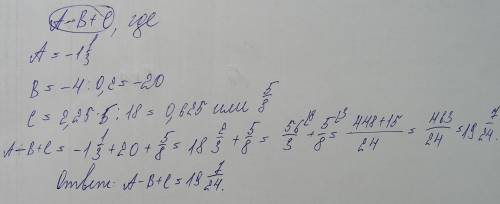 A-B+C, где
A = -1 1/3
B = -4 : 0,2 = -20
C = 2,25 · 5 : 18 = 0,625 или 5/8
A-B+C = -1 1/3 + 20 + 5/8 = 18 2/3 + 5/8 = 56/3 + 5/8 = (448+15)/24 = 463/24 = 19 7/24.
Ответ: A-B+C = 19 7/24.